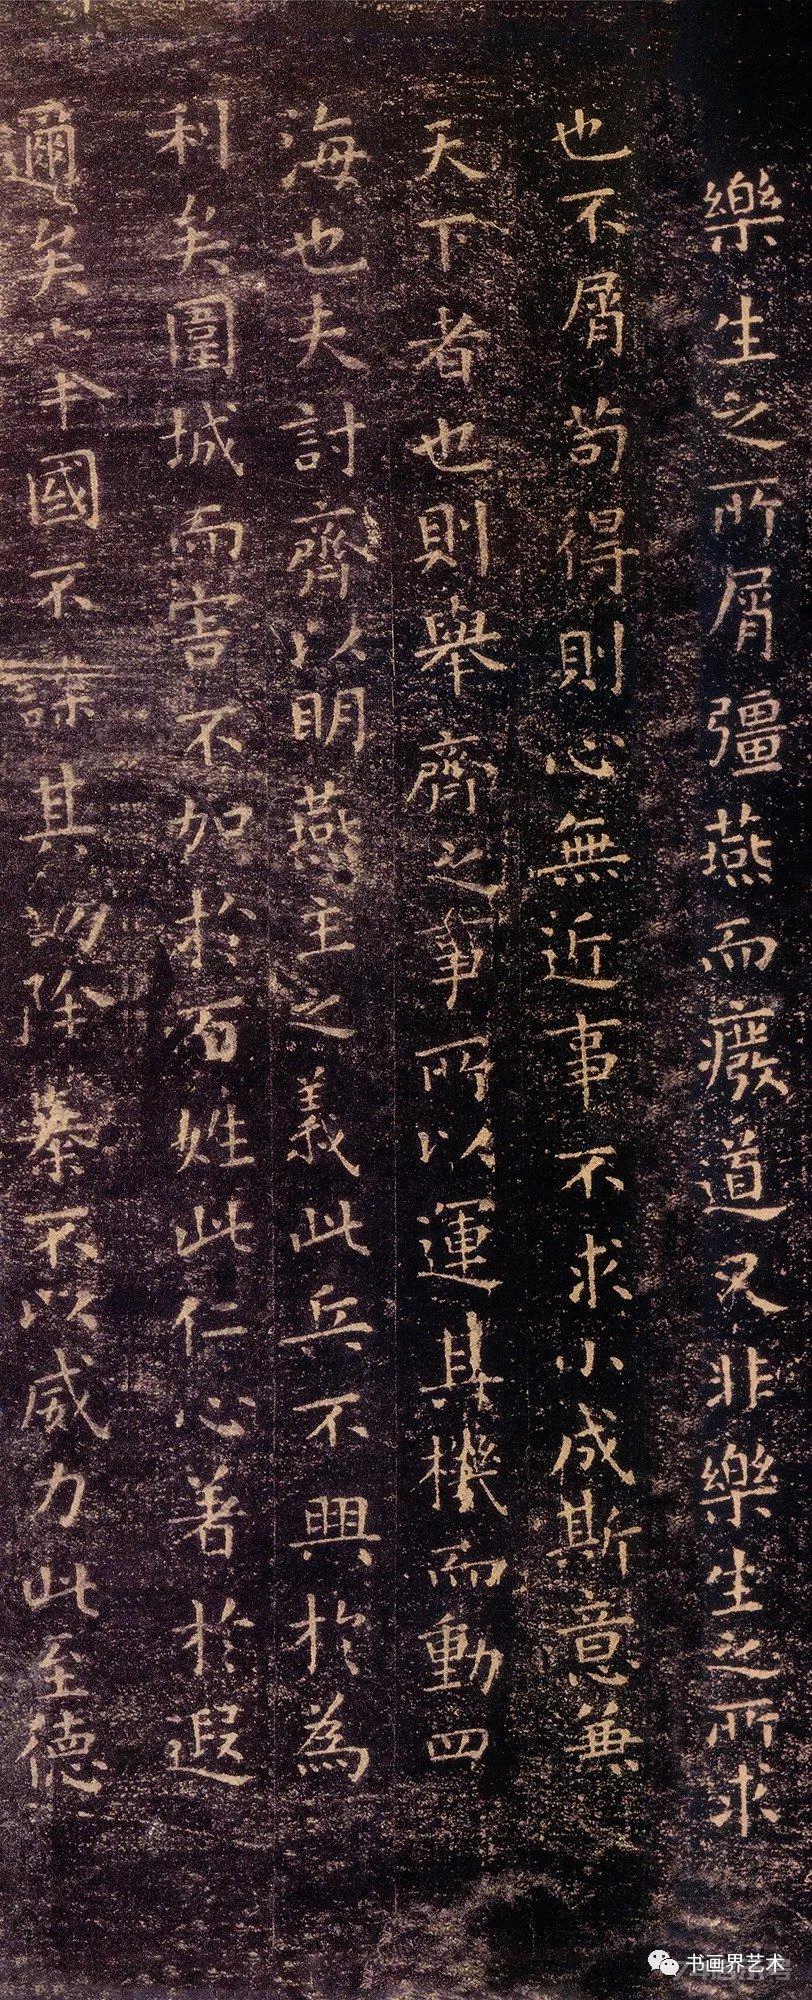 樂生之所屑彊燕而癈道又非樂生之所求
也不屑苟得則心無近事不求小成斯意兼
天下者也則舉齊之事所以運其機而動四
海也夫討齊以明燕主之義此兵不興於為
利矣圍城而害不加於百姓此仁心著於遐
邇矣舉國不謀其功除暴不以威力此至德
书画界艺术